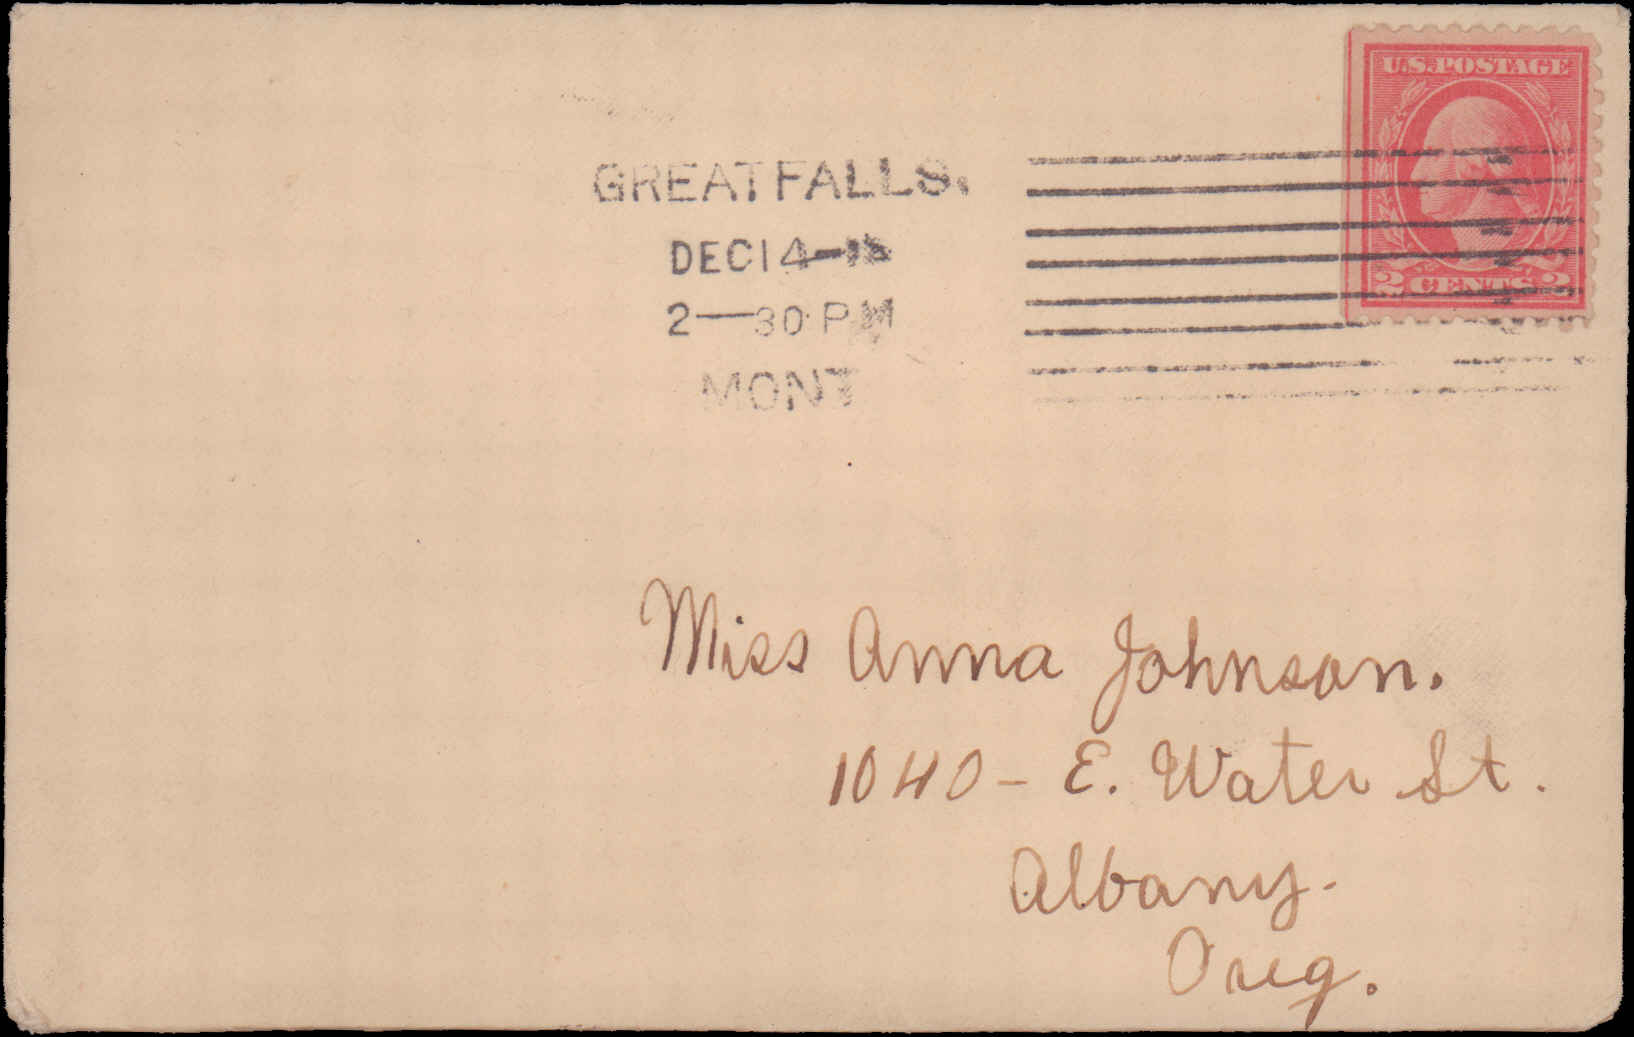 U.S. POSTAGE
2 CENTS 2
GREAT FALLS.
DEC 14
2—30 P M
MONT
Miss Anna Johnson.
1040 - E. Water St.
Albany.
Oreg.